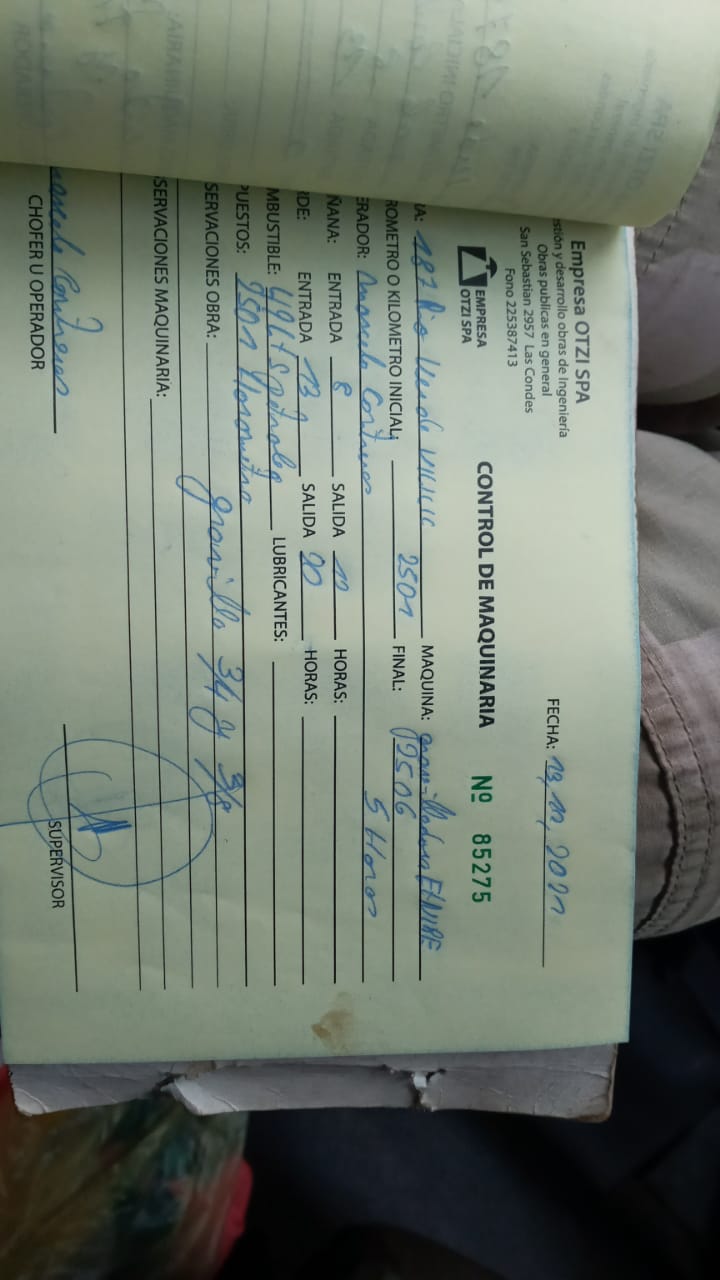 Empresa OTZI SPA
stión y desarrollo obras de Ingeniería
Obras publicas en general
San Sebastian 2957 Las Condes
Fono 225387413
FECHA: 2021
EMPRESA
OTZI SPA
CONTROL DE MAQUINARIA Nº 85275
RA: 187 Rio Verde MAQUINA:
ROMETRO O KILOMETRO INICIAL: 2501 FINAL: 2506
ERADOR: Marcelo Contreras 5 Horas
ÑANA: ENTRADA 8 SALIDA 12 HORAS:
RDE: ENTRADA 13 SALIDA 20 HORAS:
MBUSTIBLE: petroleo LUBRICANTES:
PUESTOS: 2501 Horometro
SERVACIONES OBRA: gravilla 3/4 y 3/8
SERVACIONES MAQUINARIA:
Marcelo Contreras
CHOFER U OPERADOR SUPERVISOR